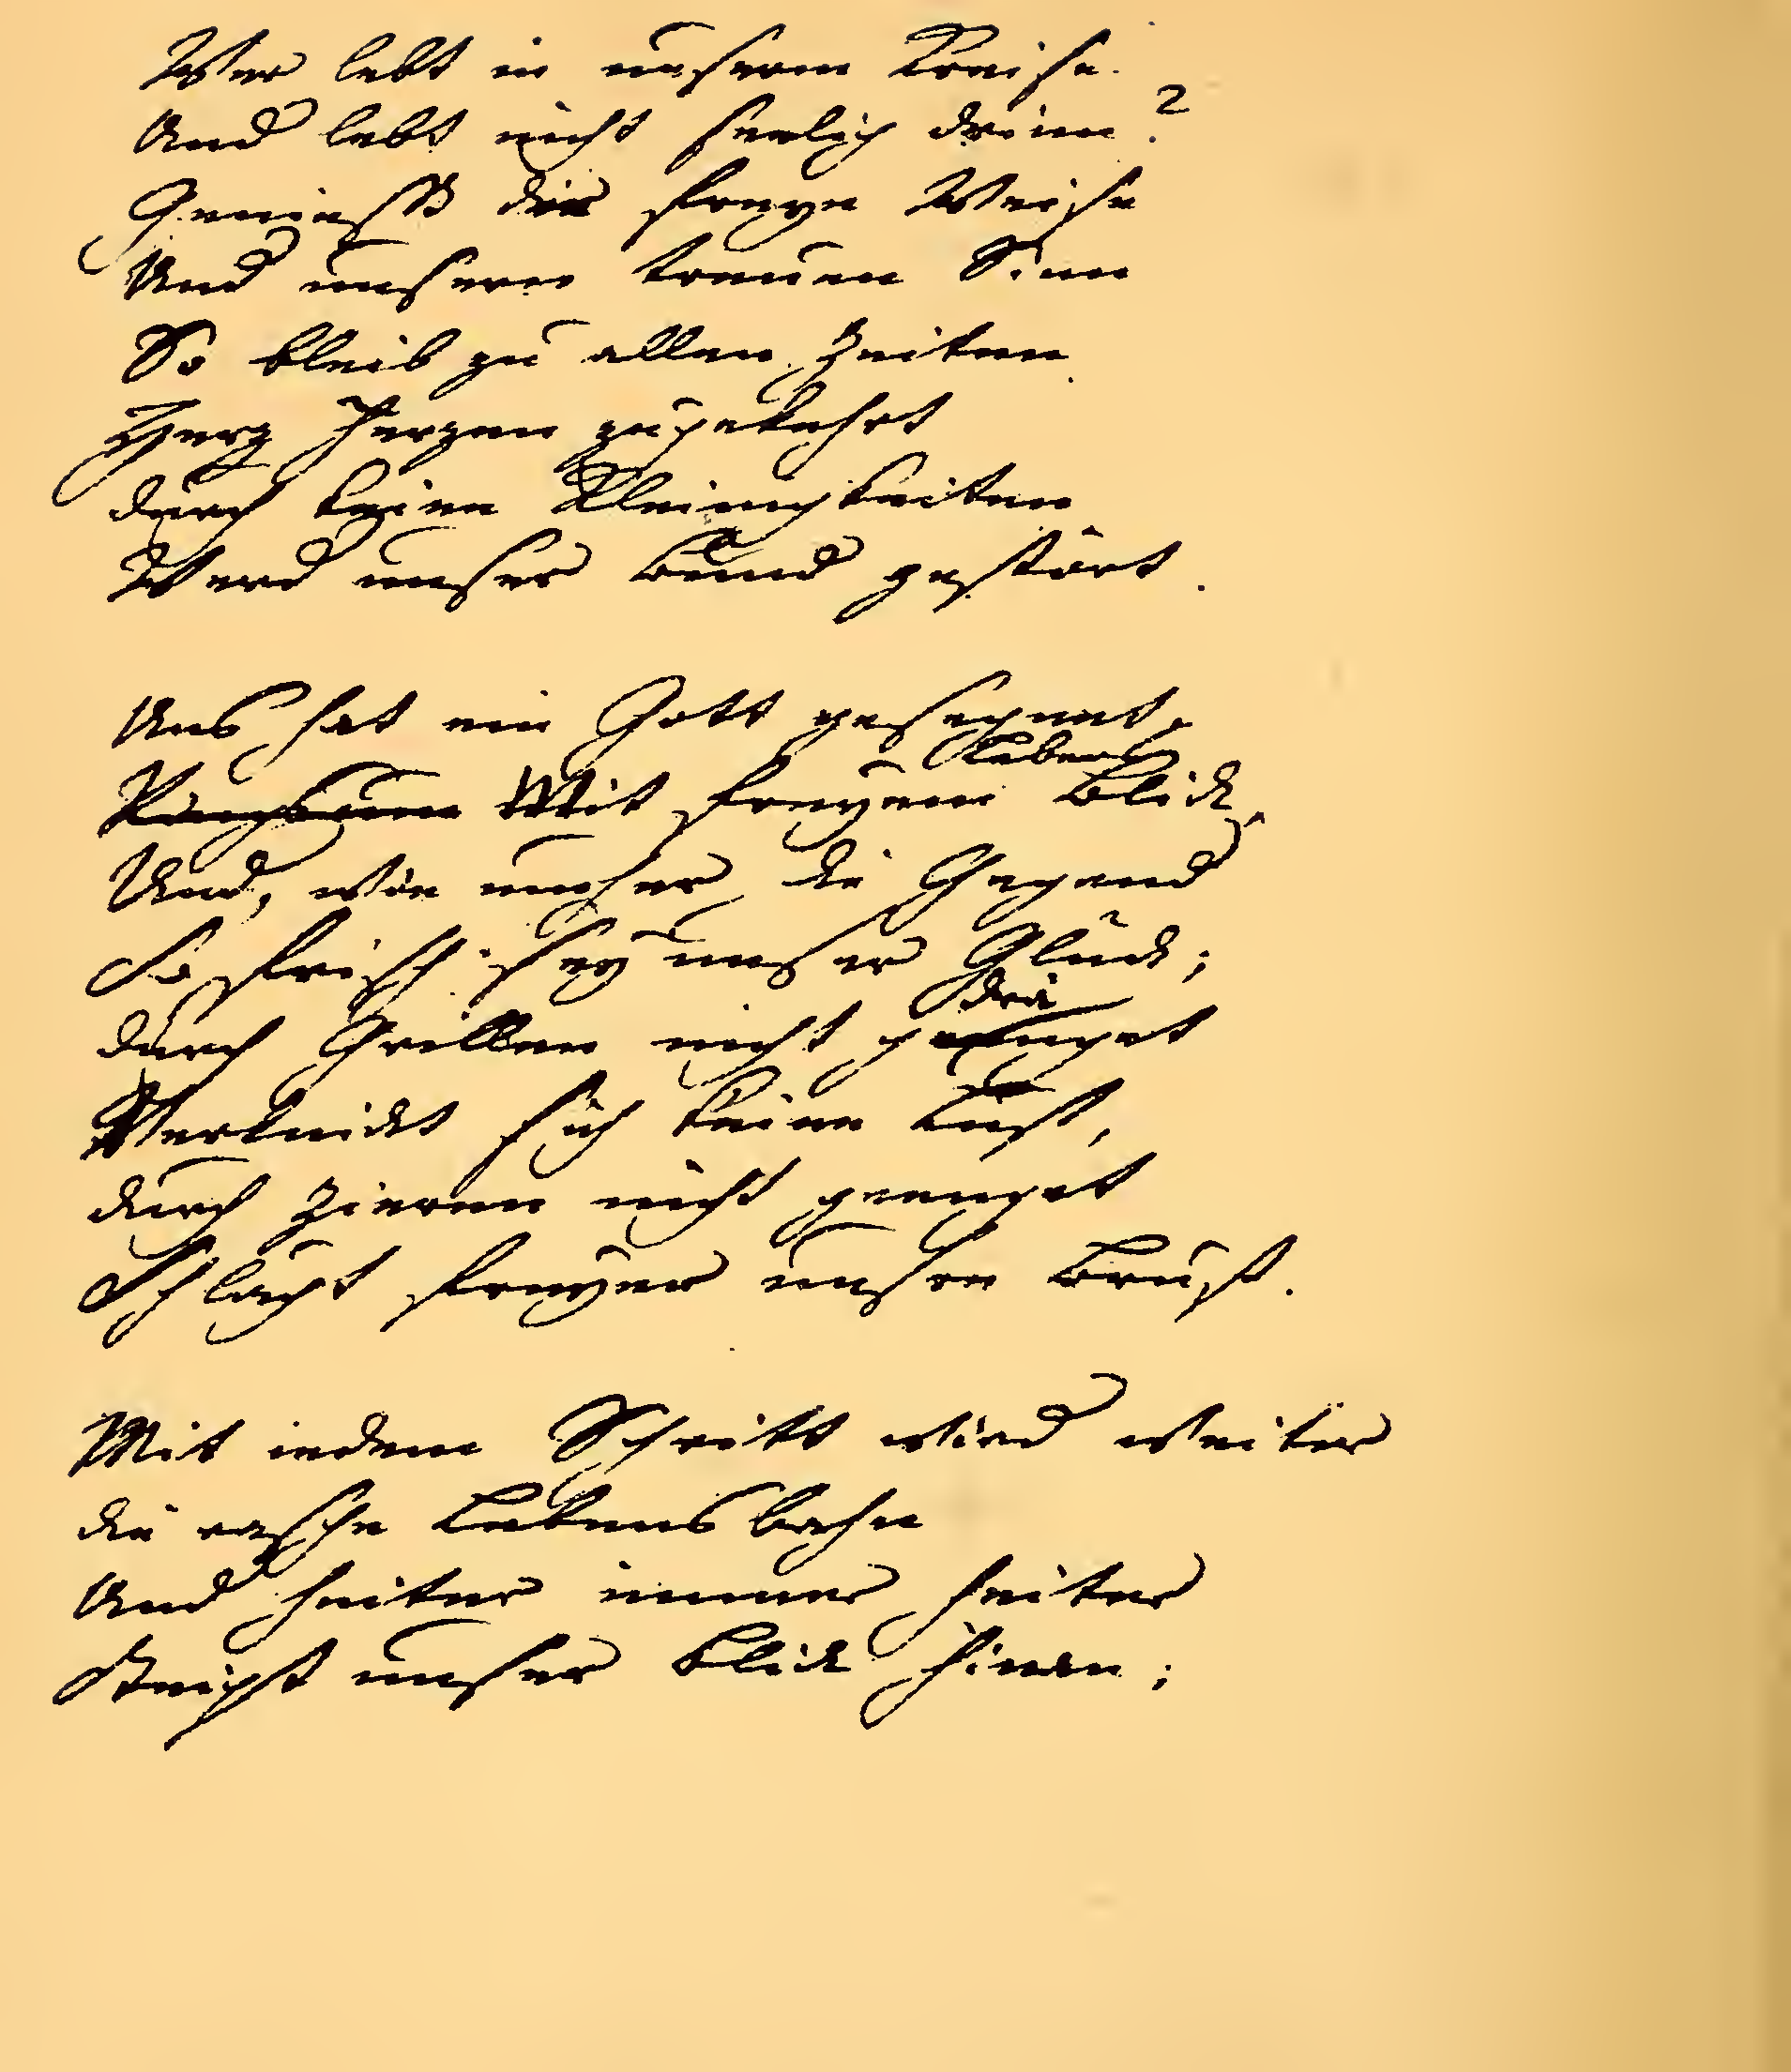 Wer lebt in unserm Kreise
Und lebt nicht seelig drinn?
Geniesst die freye Weise
Und unsern treuen Sinn
So bleib zu allen Zeiten
Herz Herzen zugekehrt
durch keine Kleinigkeiten
Werd unser Bund gestört.
Uns hat ein Gott gesegnet,
Lebens
Ringsum Mit freyem Blick,
Und, wie umher die Gegend
So frisch sey unser Glück;
drä
durch Grillen nicht geenget
Verknickt sich keine Lust,
durch Zieren nicht geenget
Schlägt freyer unsre Brust.
Mit iedem Schritt wird weiter
die rasche Lebensbahn
Und heiter immer heiter
Steigt unser Blick hinan;